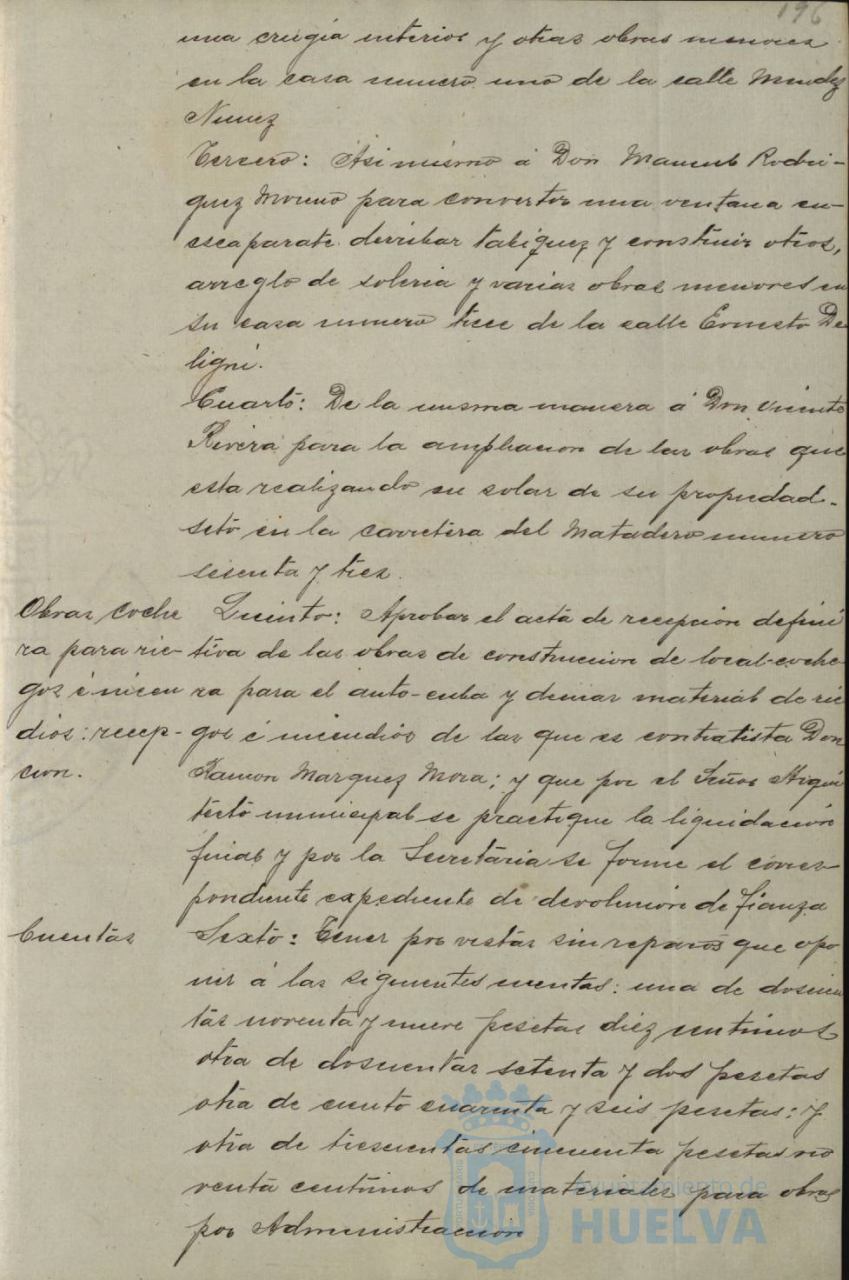 196
una crugia interior y otras obras menores
en la casa numero uno de la calle Mendez
Nunez
Tercero: Asi mismo á Don Manuel Rodri-
guez Moreno para convertir una ventana en
escaparate derribar tabiquez y construir otros,
arreglo de soleria y varias obras menores en
su casa numero trece de la calle Ernesto De
ligni.
Cuarto: De la misma manera á Don Vicente
Rivera para la ampliacion de las obras que
esta realizando en solar de su propiedad
sito en la carretera del Matadero numero
sesenta y tres.
Obras coche
ra para rie-
gos é incen
dios: recep-
cion.
Quinto: Aprobar el acta de recepción defini
tiva de las obras de construccion de local-coche
ra para el auto-cuba y demas material de rie
gos é incendios de las que es contratista Don
Ramon Marquez Mora; y que por el Señor Arqui
tecto municipal se practique la liquidación
final y por la Secretaria se forme el corres
pondiente expediente de devolución de fianza
Cuentas
Sexto: Tener por vistas sin reparos que opo
ner á las siguientes cuentas: una de doscien
tas noventa y nueve pesetas diez centimos
otra de doscientas setenta y dos pesetas
otra de ciento cuarenta y seis pesetas: y
otra de trescientas cincuenta pesetas no
venta centimos de materiales para obras
por Administracion
Ayuntamiento de
HUELVA